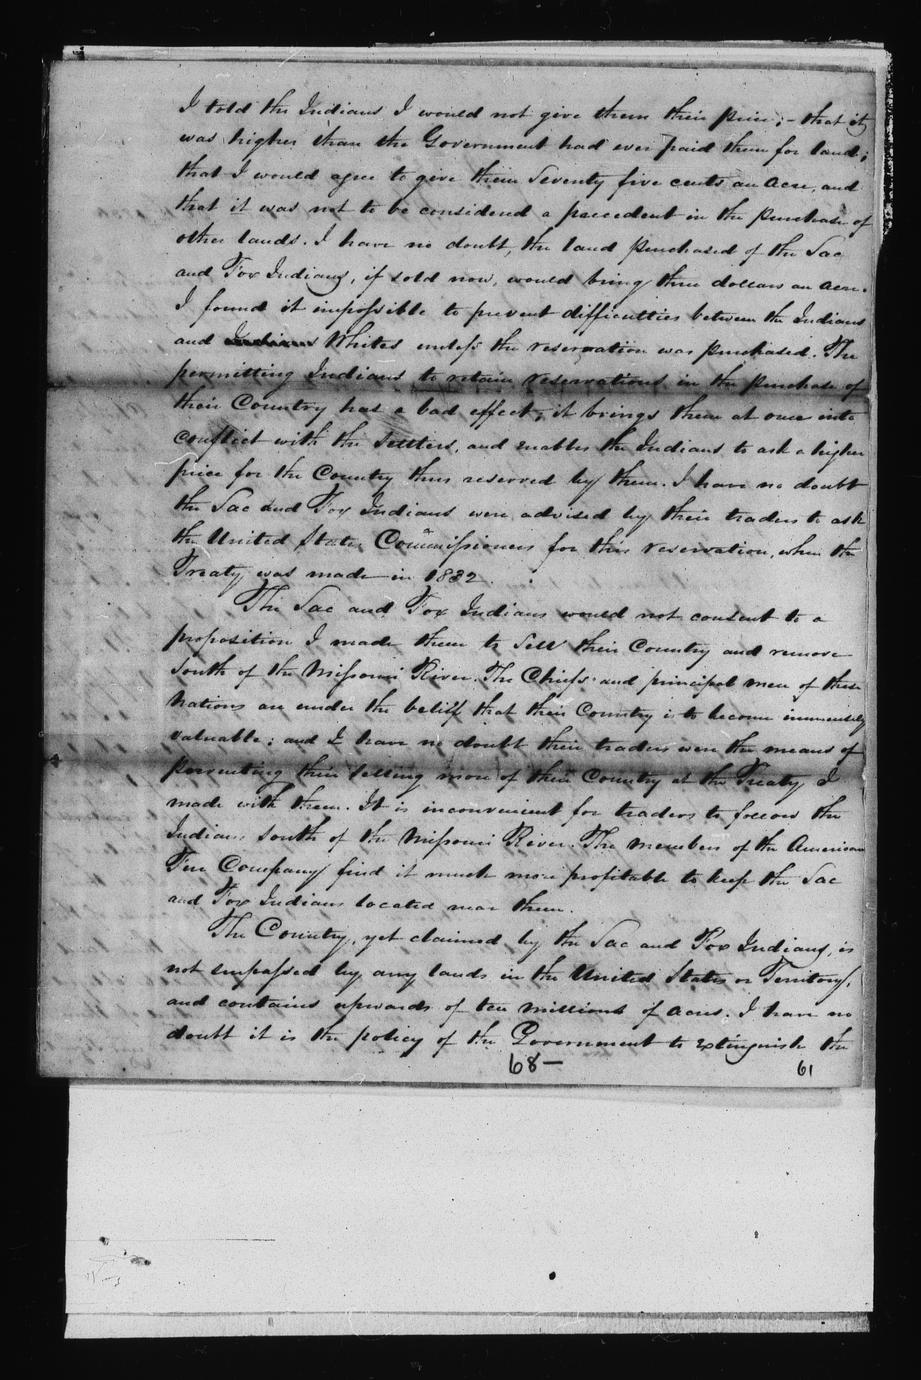 I told the Indians I would not give them their price; – that it
was higher than the Government had ever paid them for land;
that I would agree to give them Seventy five cents an Acre, and
that it was not to be considered a precedent in the purchase of
other lands. I have no doubt, the land purchased of the Sac
and Fox Indians, if sold now, would bring three dollars an acre.
I found it impossible to prevent difficulties between the Indians
and Indians Whites unless the reservation was purchased. The
permitting Indians to retain reservations in the purchase of
their Country has a bad effect; it brings them at once into
conflict with the Settlers, and enables the Indians to ask a higher
price for the Country thus reserved by them. I have no doubt
the Sac and Fox Indians were advised by their traders to ask
the United States Commissioners for this reservation, when the
Treaty was made in 1832.
The Sac and Fox Indians would not consent to a
proposition I made them to Sell their Country and remove
South of the Missouri River. The Chiefs and principal men of these
Nations are under the belief that their Country is to become immensely
valuable: and I have no doubt their traders were the means of
preventing their selling more of their Country at the Treaty I
made with them. It is inconvenient for traders to follow the
Indians South of the Missouri River. The members of the American
Fur Company find it much more profitable to keep the Sac
and Fox Indians located near them.
The Country, yet claimed by the Sac and Fox Indians, is
not surpassed by any lands in the United States or Territory,
and contains upwards of ten millions of acres. I have no
doubt it is the policy of the Government to extinguish the
68–
61